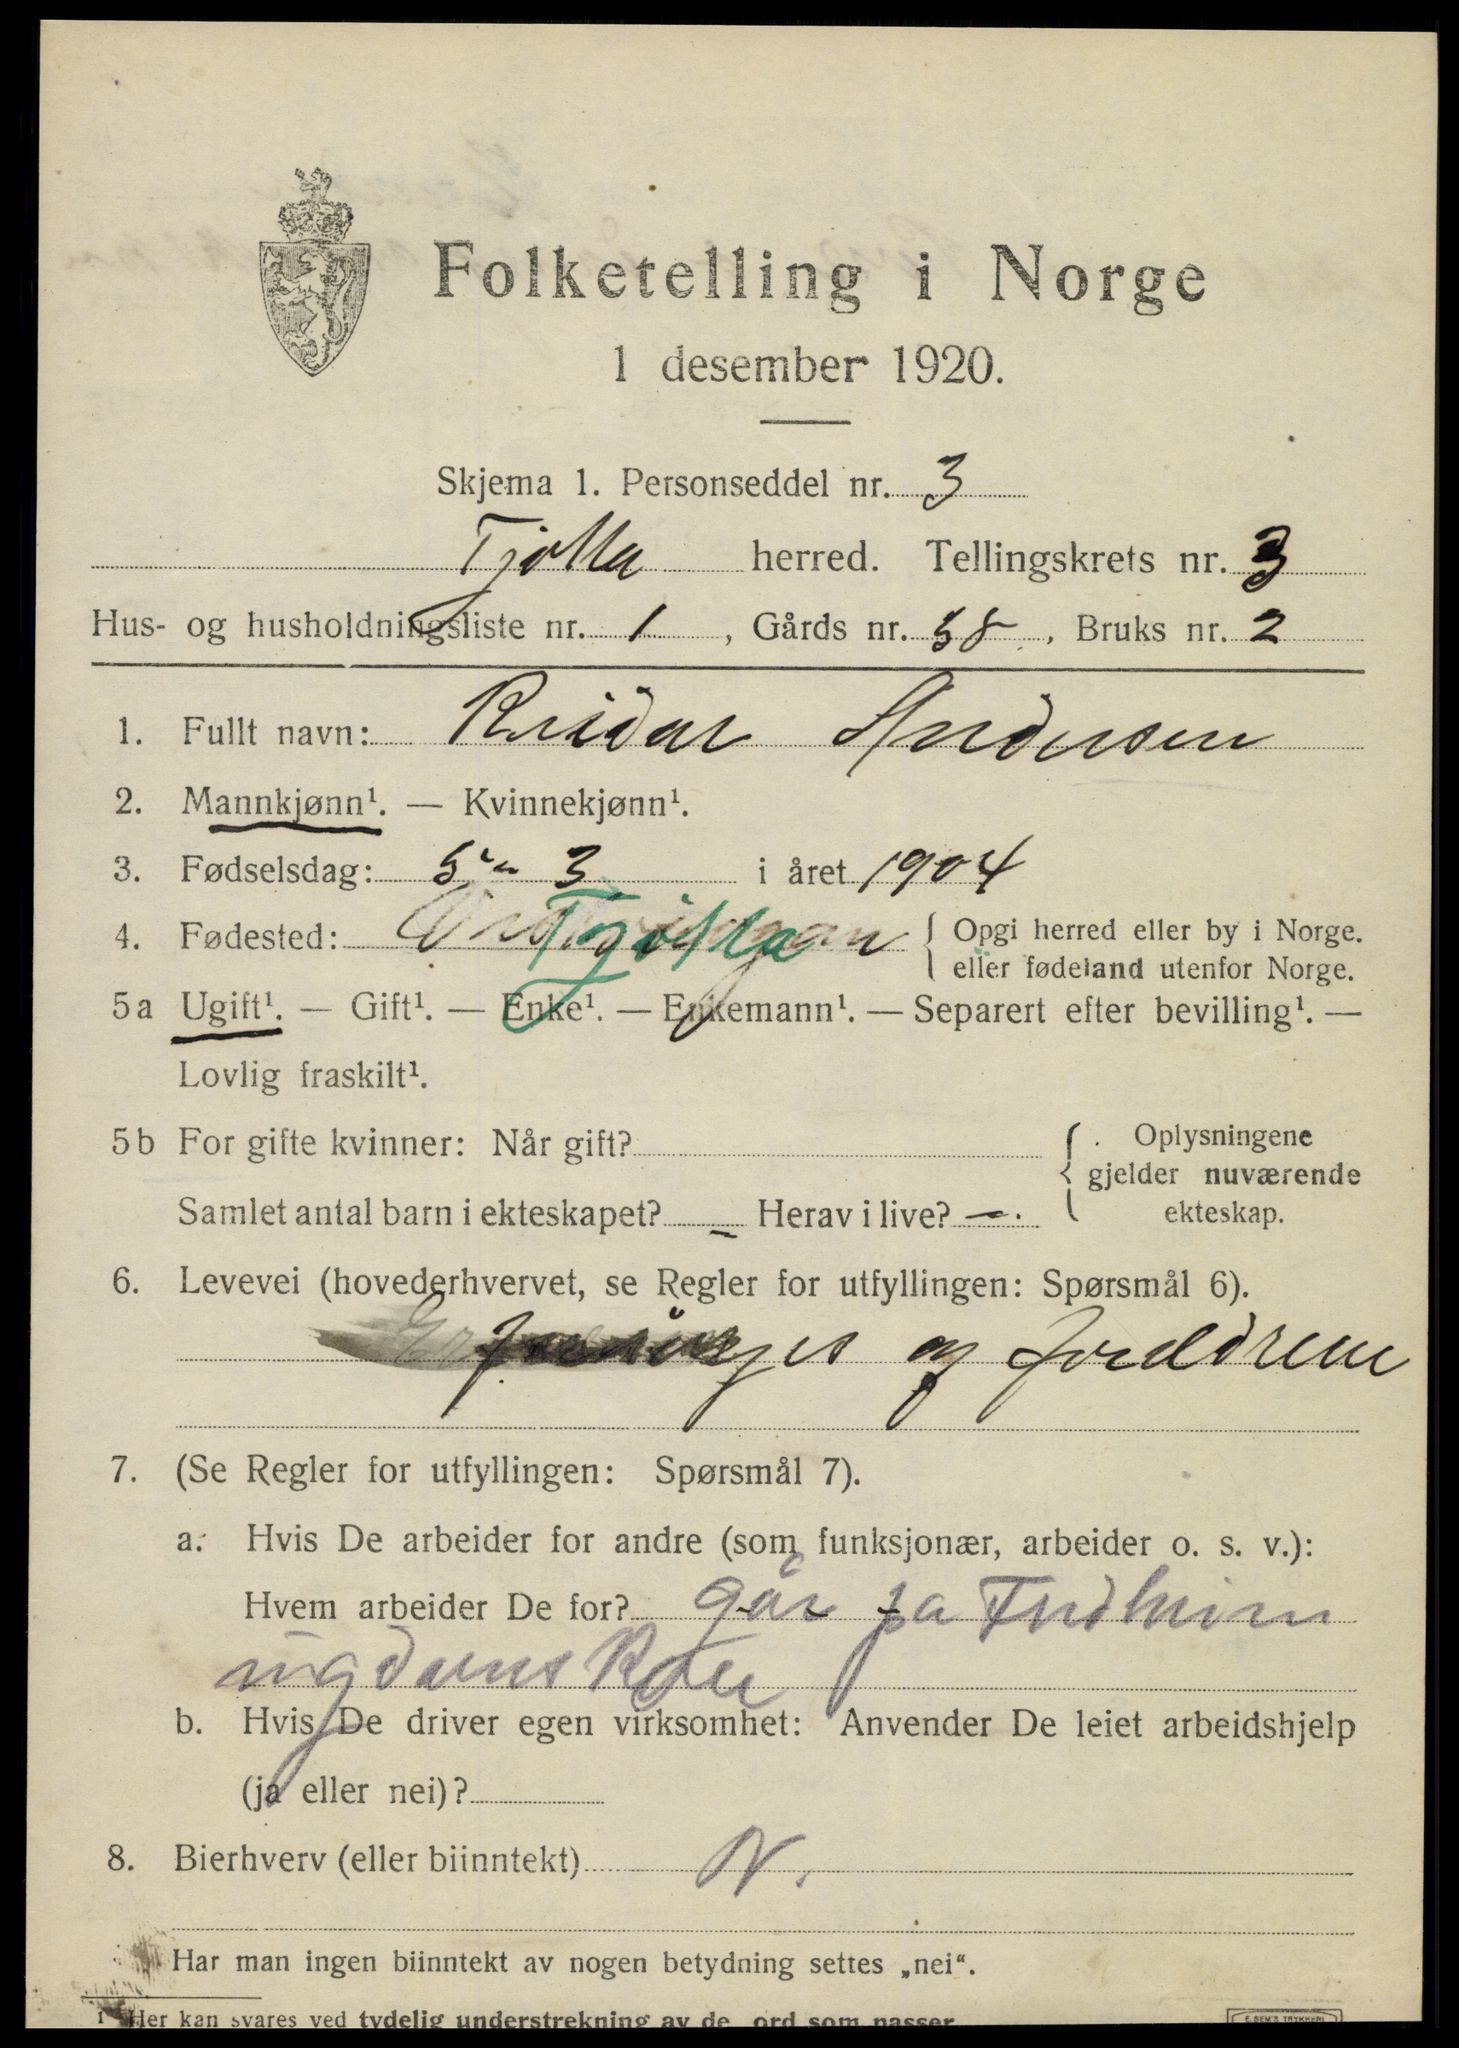 Folketelling i Norge
1 desember 1920.
Skjema 1. Personseddel nr. 3
Tjøtta herred. Tellingskrets nr. 3
Hus- og husholdningsliste nr. 1, Gårds nr. 58, Bruks nr. 2
1. Fullt navn: Reidar Andersen
2. Mannkjønn¹. — Kvinnekjønn¹.
3. Fødselsdag: 5te 3 i året 1904
4. Fødested: Tjøtta { Opgi herred eller by i Norge.
eller fødeland utenfor Norge.
5a Ugift¹. — Gift¹. — Enke¹. — Enkemann¹. — Separert efter bevilling¹. —
Lovlig fraskilt¹.
5b For gifte kvinner: Når gift? { Oplysningene
gjelder nuværende
Samlet antal barn i ekteskapet? — Herav i live? —. ekteskap.
6. Levevei (hovederhvervet, se Regler for utfyllingen: Spørsmål 6).
forsørges af foreldrene
7. (Se Regler for utfyllingen: Spørsmål 7).
a. Hvis De arbeider for andre (som funksjonær, arbeider o. s. v.):
Hvem arbeider De for? går på
b. Hvis De driver egen virksomhet: Anvender De leiet arbeidshjelp
(ja eller nei)?
8. Bierhverv (eller biinntekt) N.
Har man ingen biinntekt av nogen betydning settes „nei“.
1 Her kan svares ved tydelig understrekning av de ord som passer.
E. SEM'S TRYKKERI